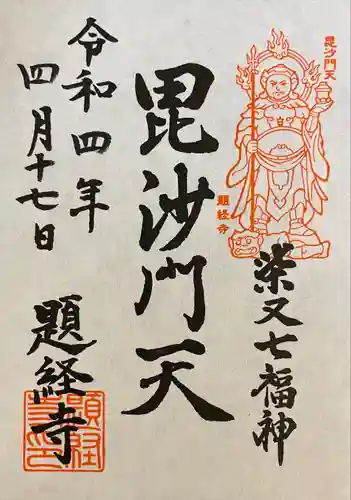 毘沙門天
題経寺
柴又七福神
毘沙門天
令和四年
四月十七日
題経寺